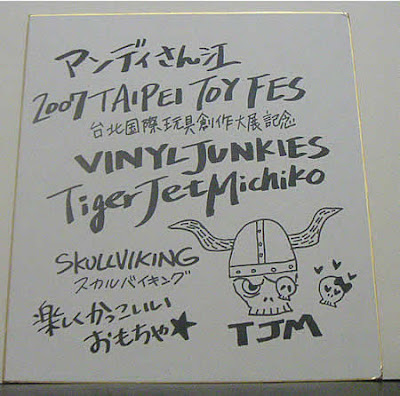 アンディさん江
2007 TAIPEI TOY FES
台北国際玩具創作大展記念
VINYL JUNKIES
Tiger Jet Michiko
SKULLVIKING
スカルバイキング
楽しくかっこいい
おもちゃ★
TJM